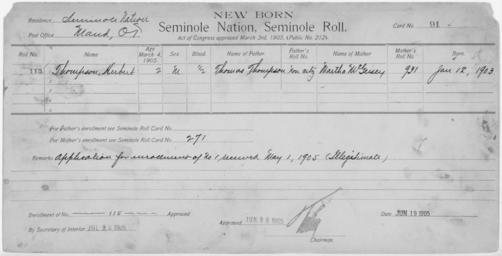 NEW BORN
Residence Seminole Nation
Seminole Nation, Seminole Roll.
Card No. 91
Post Office Maud, O.T.
Act of Congress approved March 3rd, 1905, (Public No. 212).
Roll No. Name Age March 4, 1905 Sex Blood Name of Father Father's Roll No. Name of Mother Mother's Roll No. Born.
Thompson, Herbert 2 M ½ Thomas Thompson Non city Martha McGeisey 931 Jan 12, 1903
For Father's enrollment see Seminole Roll Card No.
For Mother's enrollment see Seminole Roll Card No. 271
Remarks Application for enrollment of No 1, received May 1, 1905 (Illegitimate)
Enrollment of No. Approved
Approved
Date JUN 19 1905
By Secretary of Interior
Chairman.